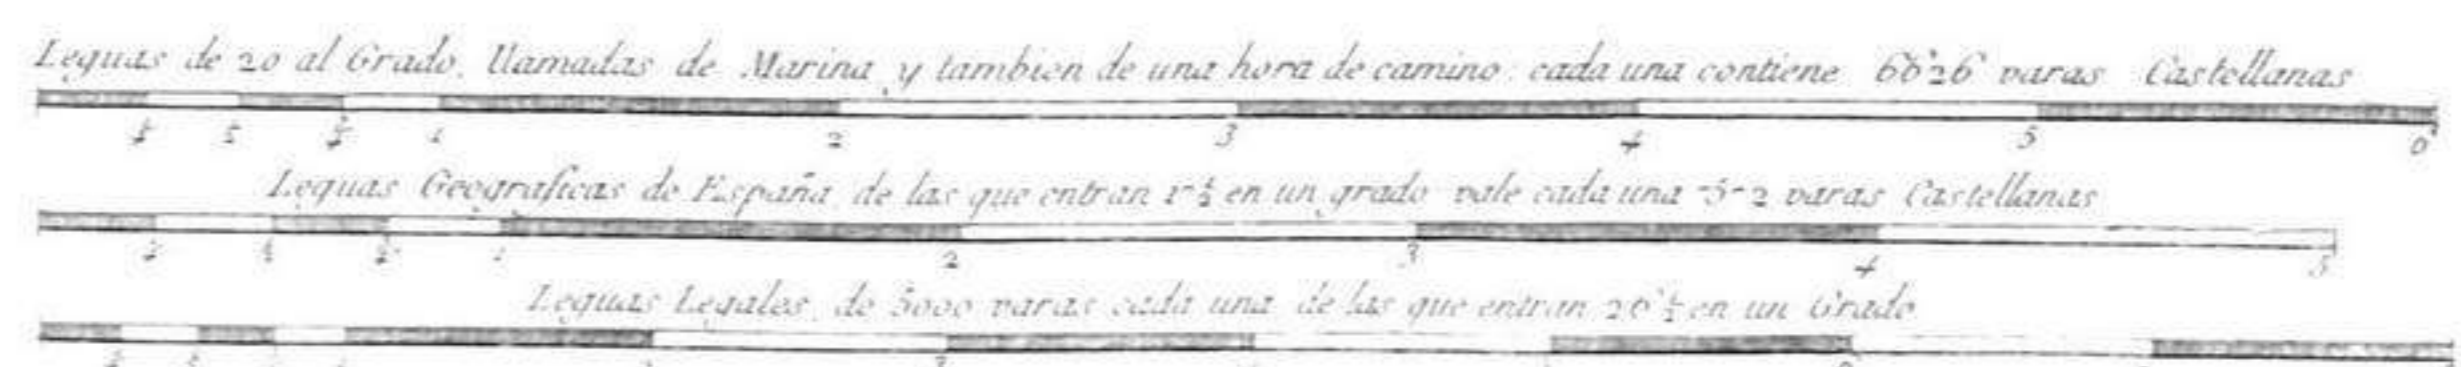 Leguas de 20 al Grado, llamadas de Marina, y tambien de una hora de camino: cada una contiene 6626 varas Castellanas
1 2 3 4 5 6
Leguas Geograficas de España, de las que entran 17½ en un grado vale cada una varas Castellanas
1 2 3 4 5
Leguas Legales, de 5000 varas cada una, de las que entran 26½ en un Grado